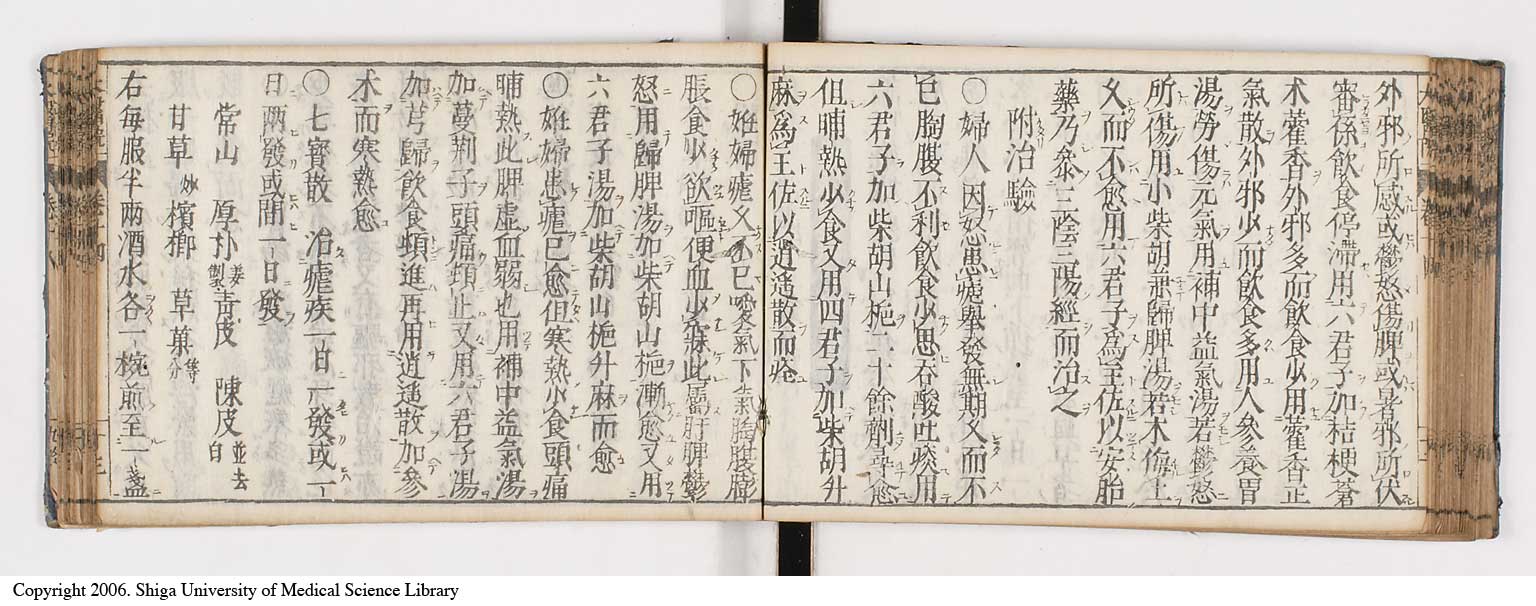 外邪所感或鬱怒傷脾或暑邪所伏
審係飲食停滯用六君子加桔梗蒼
朮藿香外邪多而飲食少用藿香正
氣散外邪少而飲食多用人參養胃
湯勞傷元氣用補中益氣湯若鬱怒
所傷用小柴胡兼歸脾湯若木侮土
久而不愈用六君子為主佐以安胎
藥乃參三陰三陽經而治之
附治驗
〇婦人因怒患瘧舉發無期久而不
已胸腹不利飲食少思吞酸吐痰用
六君子加柴胡山梔二十餘劑尋愈
但晡熱少食又用四君子加柴胡升
麻為主佐以逍遙散而痊
〇姙婦瘧久不已噯氣下氣胸腹膨
脹食少欲嘔便血少寐此屬肝脾鬱
怒用歸脾湯加柴胡山梔漸愈又用
六君子湯加柴胡山梔升麻而愈
〇姙婦患瘧已愈但寒熱少食頭痛
晡熱此脾虛血弱也用補中益氣湯
加蔓荆子頭痛頓止又用六君子湯
加芎歸飲食頓進再用逍遙散加參
朮而寒熱愈
〇七寶散 治瘧疾一日一發或一
日兩發或間一日發
常山 厚朴姜製 青皮 陳皮並去白
甘草炒 檳榔 草菓等分
右每服半兩酒水各一椀前至一盞
Copyright 2006. Shiga University of Medical Science Library